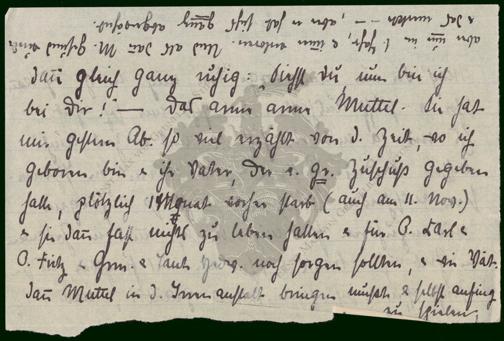 dann gleich ganz ruhig: siehst du nun bin ich
bei dir! — Das arme arme Muttel. Sie hat
mir gestern Ab. so viel erzählt von d. Zeit, wo ich
geboren bin & ihr Vater, der e. gr. Zuschuß gegeben
hatte, plötzlich 1 Monat vorher starb (auch am 11. Nov.)
& sie dann fast nichts zu leben hatten & für O. Karl &
O. Fritz & Grm. & Tante noch sorgen sollten, & wie Vat.
dann Muttel in d. Irrenanstalt bringen mußte & selbst anfing
zu spielen,